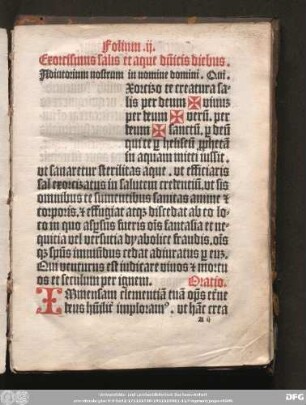 Folium .ij.
Exorcismus salis et aque dñicis diebus.
Adiutorium nostrum in nomine domini. Qui.
Xorcizo te creatura sa-
lis per deum ✠ viuum
per deum ✠ verū. per
deum ✠ sanctū. per deū
qui te per heliseū prophetā
in aquam mitti iussit.
vt sanaretur sterilitas aque. vt efficiaris
sal exorcizatus in salutem credentiū. vt sis
omnibus te sumentibus sanitas anime &
corporis. & effugiat atqz discedat ab eo lo-
co in quo aspsus fueris oīs fantasia et ne-
quicia vel versutia dyabolice fraudis. oīs
qz spūs immūdus adiuratus p eum.
Qui venturus est iudicare viuos & mortu
os et seculum per ignem. Oratio.
IMmensam clementiā tuā oīps eterne
deus hūiliter imploram⁹. vt hāc crea
A ij